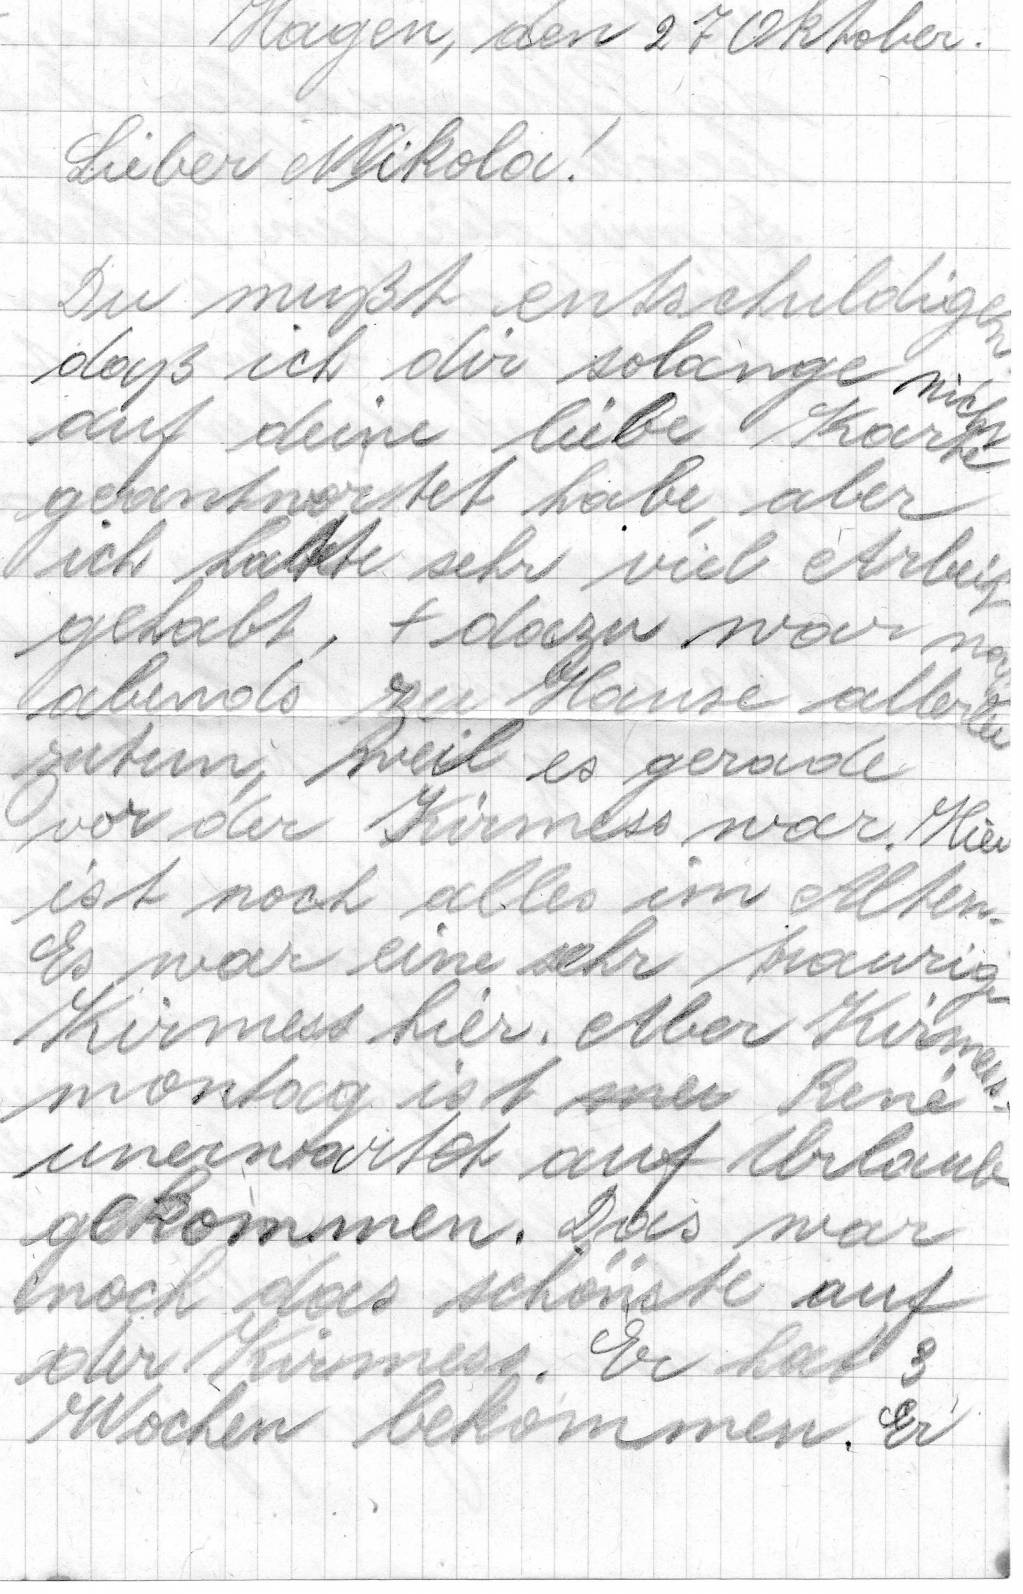 Hagen, den 27 Oktober.
Lieber Nikola!
Du mußt entschuldigen
daß ich dir solange nicht
auf deine liebe Karte
geantwortet habe, aber
ich hatte sehr viel Arbeit
gehabt, + dazu war noch
abends zu Hause allerlei
zutun, weil es gerade
vor der Kirmess war. Hier
ist noch alles im Alten.
Es war eine sehr traurige
Kirmess hier. Aber Kirmess-
montag ist René
unerwartet auf Urlaub
gekommen. Das war
noch das schönste auf
der Kirmess. Er hat 3
Wochen bekommen. Er